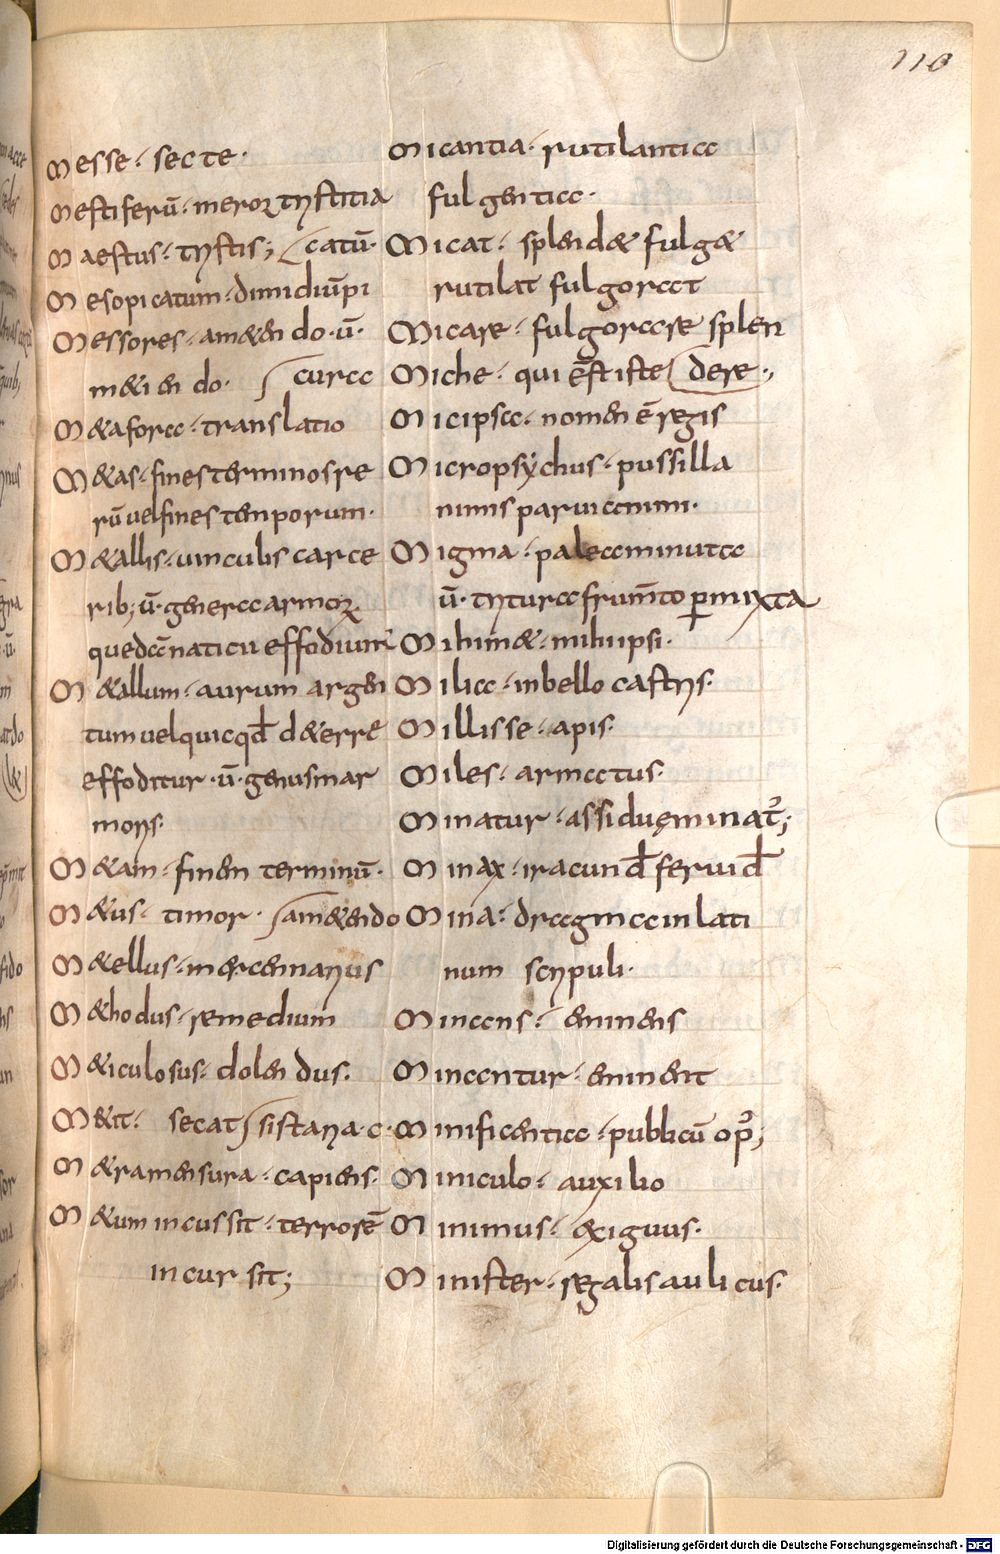 110
Messe · secte ·
Mestiferū · meroꝝ tristitia
Maestus · tristis ; catū ·
Mesopicatum · dimidiūpi
Messores · am&endo · ū ·
m&iendo · cura
M&afora · translatio
M&as · fines terminos re
rū vel fines temporum ·
M&allis · vinculis carce
rib; ū · genera armoꝝ
M&allum · aurum argen
tum vel quicqđ d&erre
effoditur · ū · genus mar
moris ·
M&am · finem terminū ·
M&us · timor · am&endo
M&ellus · mercennarius
M&hodus · remedium
M&iculosus · dolendus ·
M&it · secat sistaria · c ·
M&ramensura · capiens ·
M&um incussit · terrorē
incursit ;
Micantia · rutilantia
fulgentia ·
Micat · splend& fulg&
rutilat fulgorat
Micare · fulgorare splen
Miche · qui ē&st iste dere ·,
Micipsa · nomen ē regis
Micropsychus · pussilla
nimis parvi animi ·
Migma · palea minuta
ū · triturafrum̄to ꝑmixta
Mihim& · mihi ipsi ·
Milia · in bello castris ·
Millisse · apis ·
Miles · armatus ·
Minatur · assiduęminat᷑ ;
Minax · iracunđ ferviđ
Mina · dragma in lati
num scripuli ·
Minans · eminens
Minantur · eminent
Minificentia · publicū op᷒ ;
Miniculo · auxilio
Minimus · exiguus ·
Minister · regalis aulicus ·
Digitalisierung gefördert durch die Deutsche Forschungsgemeinschaft - DFG